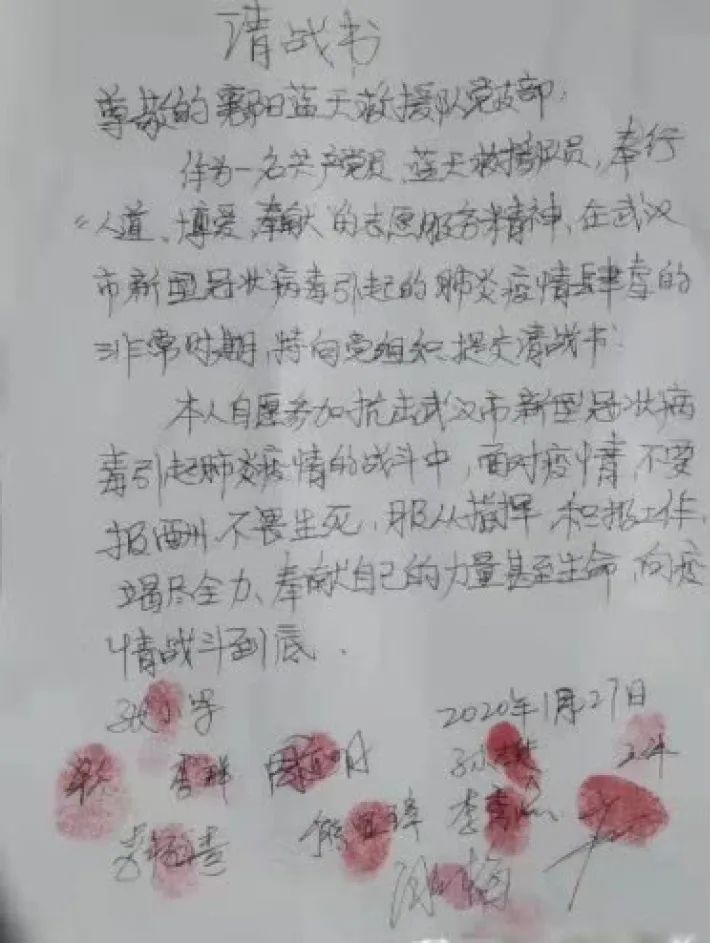 请战书
尊敬的襄阳蓝天救援队党支部:
作为一名共产党员、蓝天救援队员,奉行
“人道、博爱、奉献”的志愿服务精神、在武汉
市新型冠状病毒引起的肺炎疫情肆虐的
非常时期,特向党组织提交请战书:
本人自愿参加抗击武汉市新型冠状病
毒引起肺炎疫情的战斗中,面对疫情,不要
报酬、不畏生死,服从指挥、积极工作,
竭尽全力、奉献自己的力量甚至生命,向疫
情战斗到底.
2020年1月27日